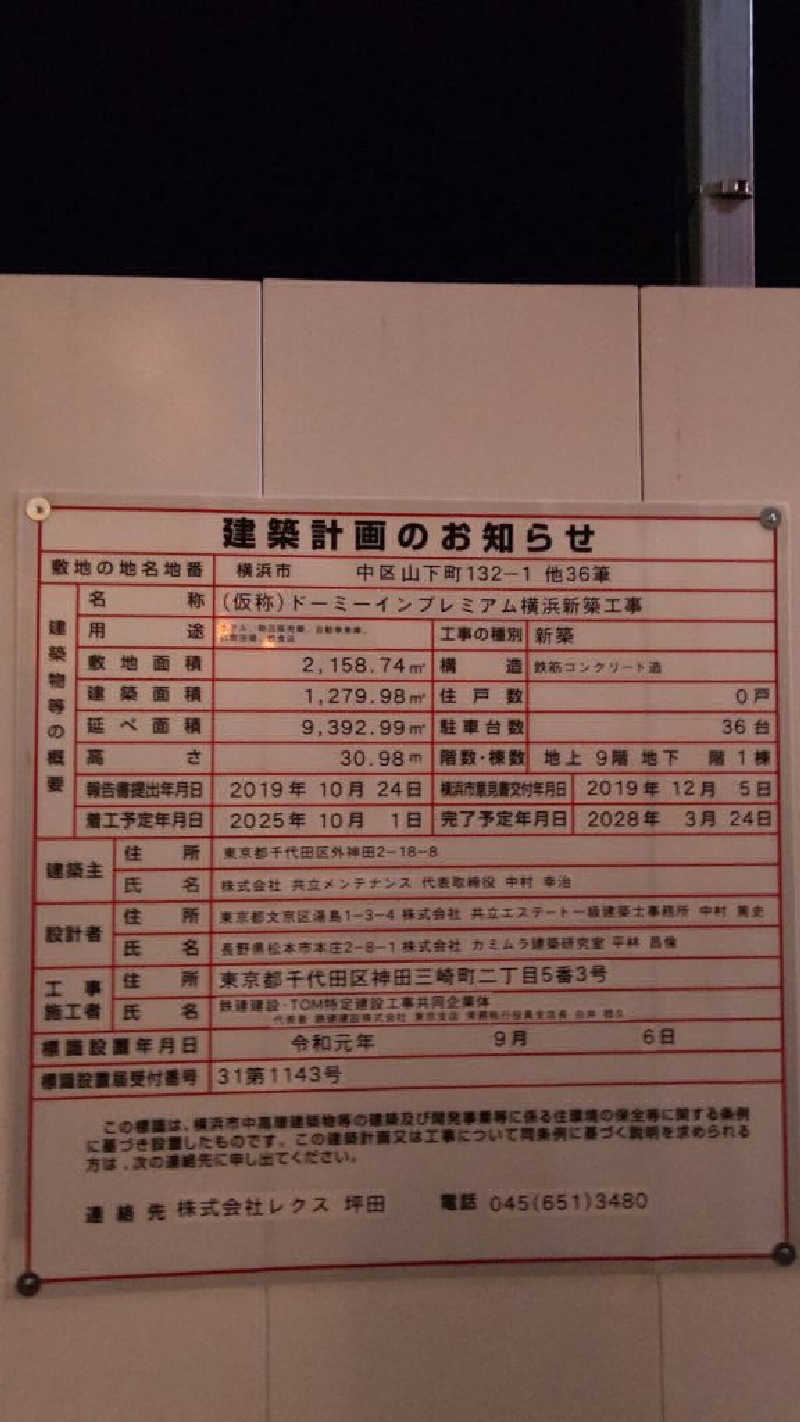 建築計画のお知らせ
敷地の地名地番 横浜市 中区山下町132－1 他36筆
建築物等の概要
名称 (仮称)ドーミーインプレミアム横浜新築工事
用途 工事の種別 新築
敷地面積 2,158.74㎡ 構造 鉄筋コンクリート造
建築面積 1,279.98㎡ 住戸数 0戸
延べ面積 9,392.99㎡ 駐車台数 36台
高さ 30.98m 階数・棟数 地上 9階 地下 階 1棟
報告書提出年月日 2019年 10月 24日 横浜市意見書交付年月日 2019年 12月 5日
着工予定年月日 2025年 10月 1日 完了予定年月日 2028年 3月 24日
建築主 住所 東京都千代田区外神田2－18－8
氏名 株式会社 共立メンテナンス 代表取締役 中村 幸治
設計者 住所 東京都文京区湯島1－3－4 株式会社 共立エステート一級建築士事務所 中村
氏名 長野県松本市本庄2－8－1 株式会社 カミムラ建築研究室 平林
工事施工者 住所 東京都千代田区神田三崎町二丁目5番3号
氏名 鉄建建設・TOM特定建設工事共同企業体
代表者 鉄建建設株式会社 東京支店 常務執行役員支店長
標識設置年月日 令和元年 9月 6日
標識設置届受付番号 31第1143号
この標識は、横浜市中高層建築物等の建築及び開発事業等に係る住環境の保全等に関する条例
に基づき設置したものです。この建築計画又は工事について同条例に基づく説明を求められる
方は、次の連絡先に申し出てください。
連絡先 株式会社レクス 坪田 電話 045(651)3480